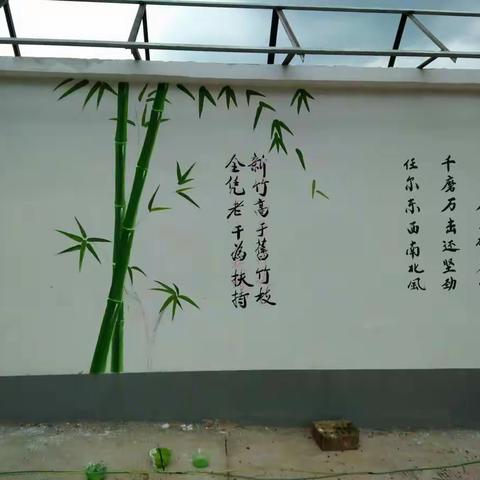 千磨万击还坚劲
任尔东西南北风
新竹高于舊竹枝
全凭老干为扶持